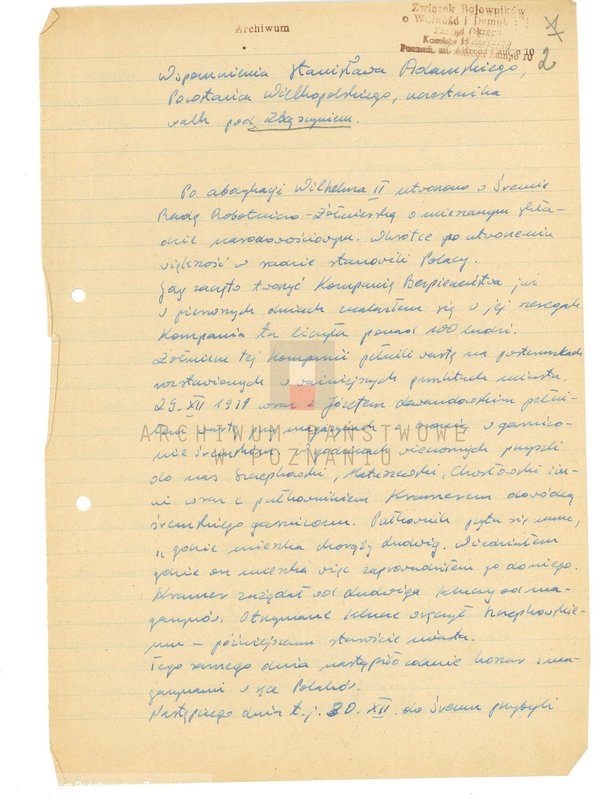 Archiwum
Związek Bojowników
o Wolność i Demokr
Zarząd Okręgu
Komisja Historyczna
Poznań, ul. Lampe 10
2
Wspomnienia Stanisława Adamskiego,
Powstańca Wielkopolskiego, uczestnika
walk pod Zbąszyniem.
Po abdykacji Wilhelma II utworzono w Śremie
Radę Robotniczo-Żołnierską o mieszanym skła-
dzie narodowościowym. Wkrótce po utworzeniu
większość w radzie stanowili Polacy.
Gdy zaczęto tworzyć Kompanię Bezpieczeństwa już
w pierwszych dniach znalazłem się w jej szeregach
Kompania ta liczyła ponad 100 ludzi.
Żołnierze tej kompanii pełnili wartę na posterunkach
rozstawionych w ważniejszych punktach miasta.
29. XII 1918 wraz z Józefem Lewandowskim pełni-
łem wartę przy magazynach z bronią w garnizo-
nie śremskim. W godzinach wieczornych przyszli
do nas Szczepkowski, Matuszewski, Chosłowski i in-
ni wraz z pułkownikiem Kramerem dowódcą
śremskiego garnizonu. Pułkownik pyta się mnie,
„gdzie mieszka chorąży Ludwig. Wiedziałem
gdzie on mieszka więc zaprowadziłem go do niego.
Kramer zażądał od Ludwiga kluczy od ma-
gazynów. Otrzymane klucze wręczył Szczepkowskie-
mu – późniejszemu staroście miasta.
Tego samego dnia nastąpiło oddanie koszar z ma-
gazynami w ręce Polaków.
Następnego dnia t.j. 30. XII. do Śremu przybyli
ARCHIWUM PAŃSTWOWE
W POZNANIU